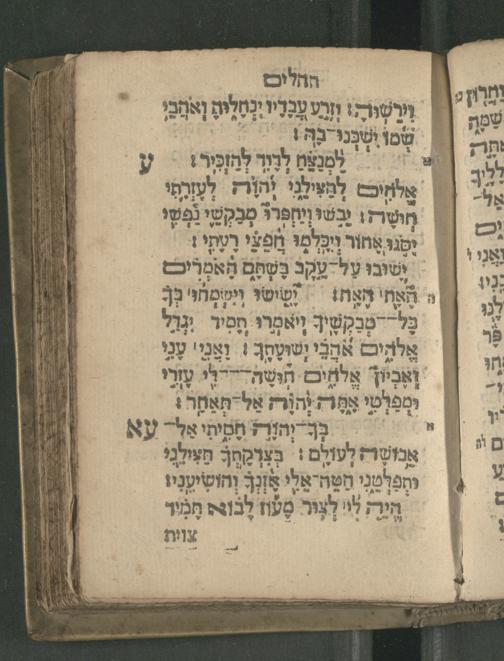 תהלים
וִירֵשׁוּהָ׃ וְזֶרַע עֲבָדָיו יִנְחָלוּהָ וְאֹהֲבֵי
שְׁמוֹ יִשְׁכְּנוּ־בָהּ׃
ע לַמְנַצֵּחַ לְדָוִד לְהַזְכִּיר׃
אֱלֹהִים לְהַצִּילֵנִי יְהוָה לְעֶזְרָתִי
חוּשָׁה׃ יֵבֹשׁוּ וְיַחְפְּרוּ מְבַקְשֵׁי נַפְשִׁי
יִסֹּגוּ אָחוֹר וְיִכָּלְמוּ חֲפֵצֵי רָעָתִי׃
יָשׁוּבוּ עַל־עֵקֶב בָּשְׁתָּם הָאֹמְרִים
הֶאָח הֶאָח׃ יָשִׂישׂוּ וְיִשְׂמְחוּ בְּךָ
כָּל־מְבַקְשֶׁיךָ וְיֹאמְרוּ תָמִיד יִגְדַּל
אֱלֹהִים אֹהֲבֵי יְשׁוּעָתֶךָ׃ וַאֲנִי עָנִי
וְאֶבְיוֹן אֱלֹהִים חוּשָׁה־לִּי עֶזְרִי
וּמְפַלְטִי אַתָּה יְהוָה אַל־תְּאַחַר׃
עא בְּךָ־יְהוָה חָסִיתִי אַל־
אֵבוֹשָׁה לְעוֹלָם׃ בְּצִדְקָתְךָ תַּצִּילֵנִי
וּתְפַלְּטֵנִי הַטֵּה־אֵלַי אָזְנְךָ וְהוֹשִׁיעֵנִי׃
הֱיֵה לִי לְצוּר מָעוֹז לָבוֹא תָּמִיד
צוית